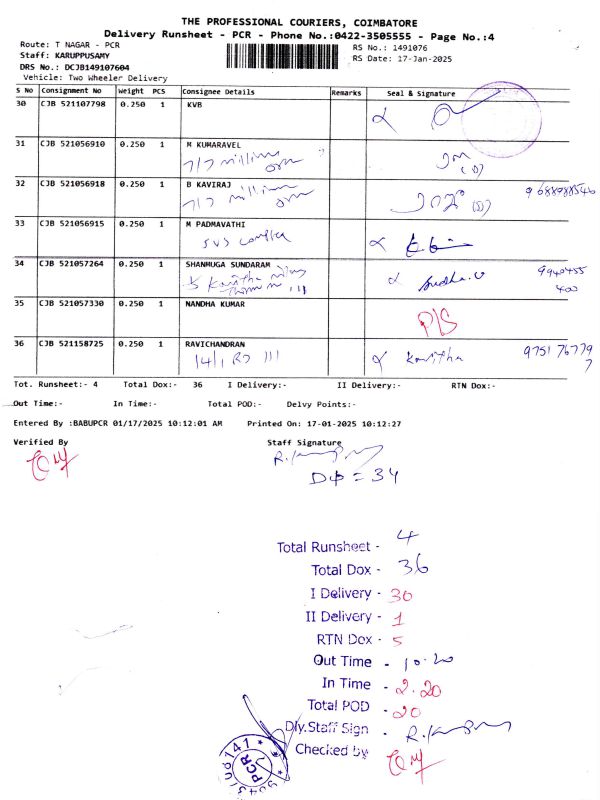 THE PROFESSIONAL COURIERS, COIMBATORE
Delivery Runsheet - PCR - Phone No.:0422-3505555 - Page No.:4
Route: T NAGAR - PCR RS No.: 1491076
Staff: KARUPPUSAMY RS Date: 17-Jan-2025
DRS No.: DCJB149107604
Vehicle: Two Wheeler Delivery
S No Consignment No Weight PCS Consignee Details Remarks Seal & Signature
30 CJB 521107798 0.250 1 KVB
31 CJB 521056910 0.250 1 M KUMARAVEL
717 million
32 CJB 521056918 0.250 1 B KAVIRAJ
717 million
33 CJB 521056915 0.250 1 M PADMAVATHI
SVS complex
34 CJB 521057264 0.250 1 SHANMUGA SUNDARAM
Sudha.V 9940455
400
35 CJB 521057330 0.250 1 NANDHA KUMAR
P/S
36 CJB 521158725 0.250 1 RAVICHANDRAN
Kavitha 975176779
7
Tot. Runsheet:- 4 Total Dox:- 36 I Delivery:- II Delivery:- RTN Dox:-
Out Time:- In Time:- Total POD:- Delvy Points:-
Entered By :BABUPCR 01/17/2025 10:12:01 AM Printed On: 17-01-2025 10:12:27
Verified By Staff Signature
= 34
Total Runsheet - 4
Total Dox - 36
I Delivery - 30
II Delivery - 1
RTN Dox - 5
Out Time - 10.20
In Time - 2.20
Total POD - 20
Dly.Staff Sign -
Checked by
PCR